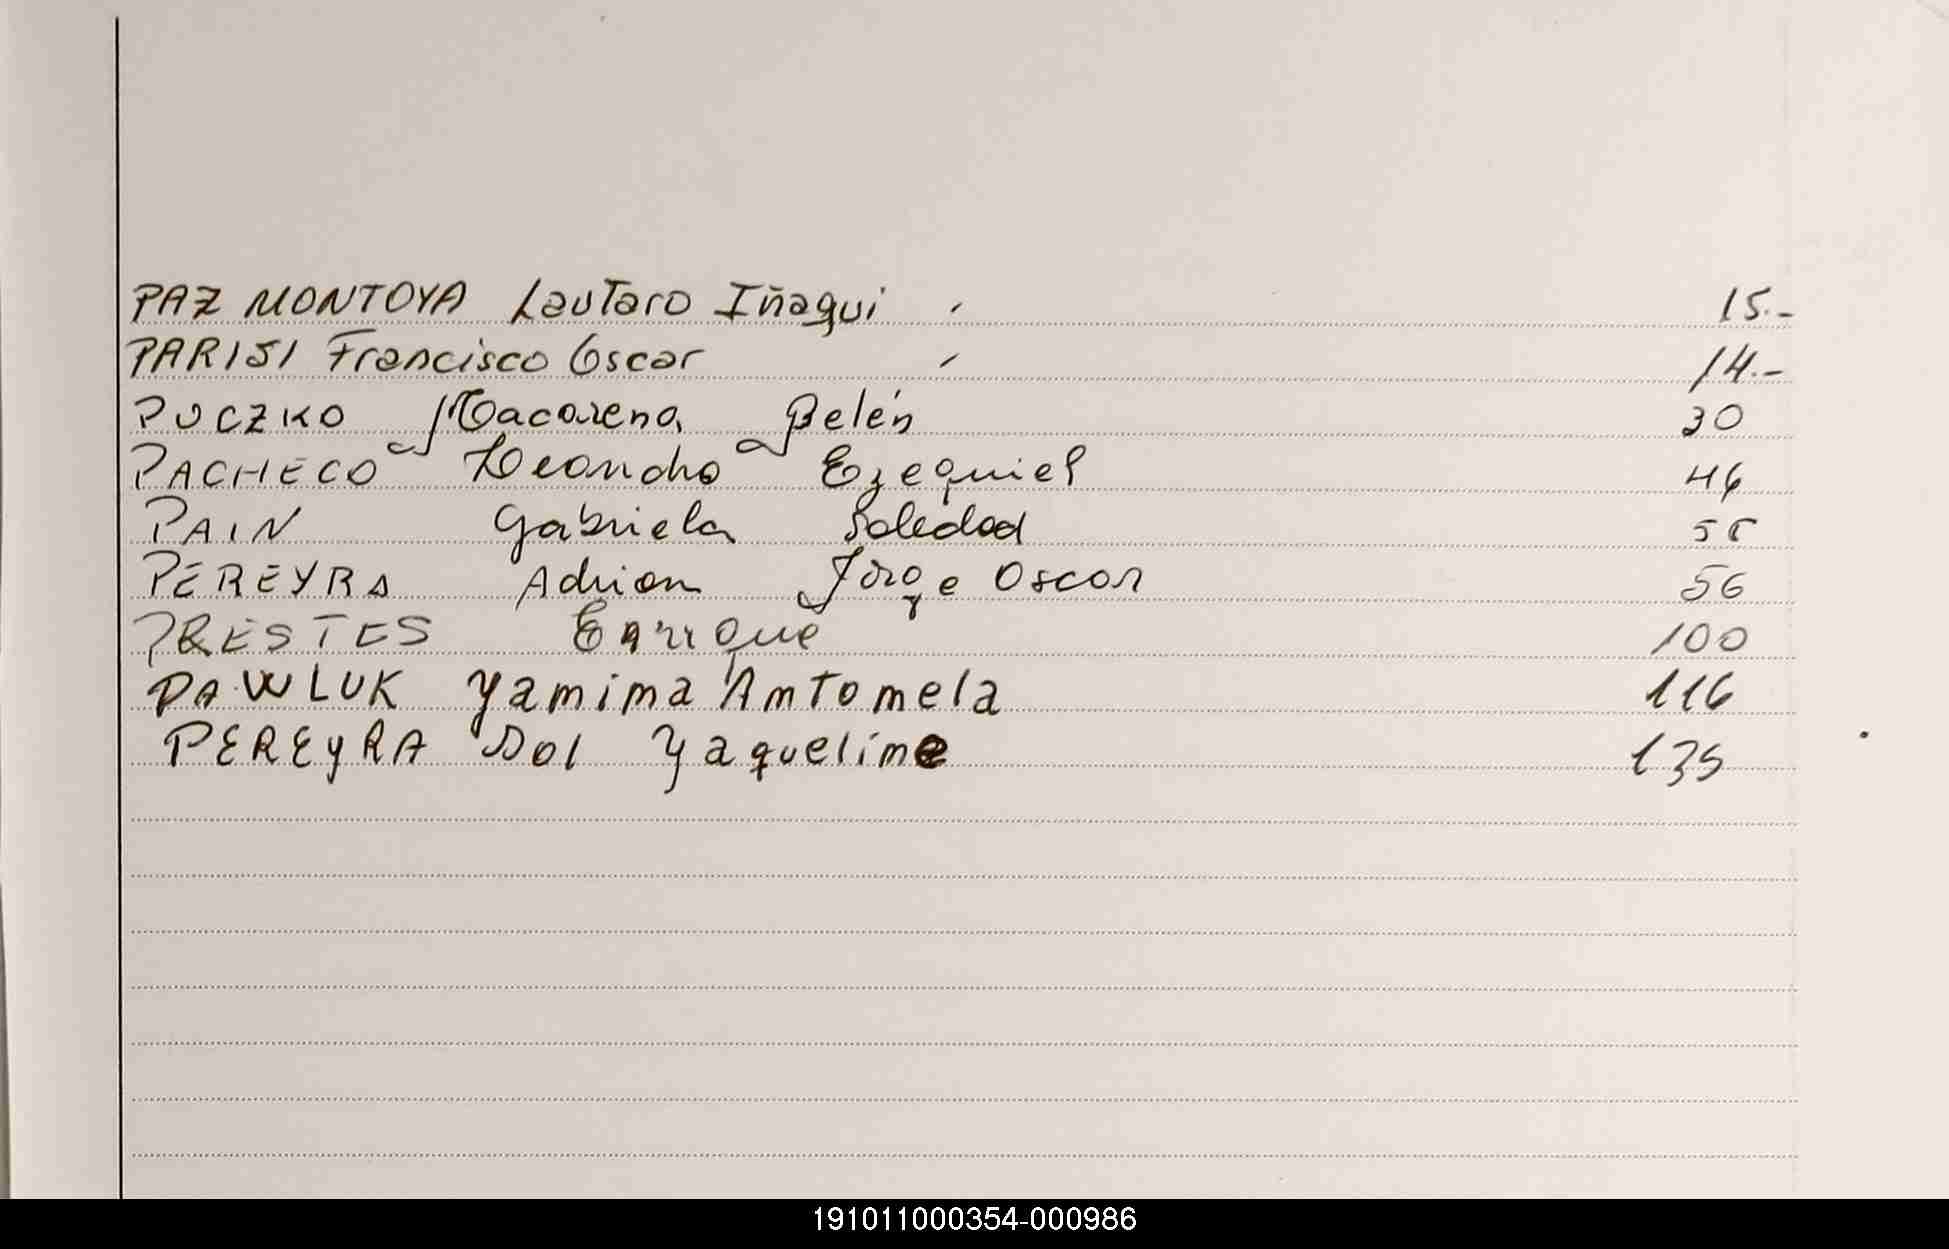 PAZ MONTOYA Lautaro Iñaqui 15.-
PARISI Francisco Oscar 14.-
PUCZKO Macarena Belén 30
PACHECO Leandro Ezequiel 46
PAIN Gabriela Soledad 55
PEREYRA Adrian Jorge Oscar 56
PRESTES Enrique 100
PAWLUK Yamima Antonela 116
PEREYRA Sol Yaqueline 135
191011000354-000986